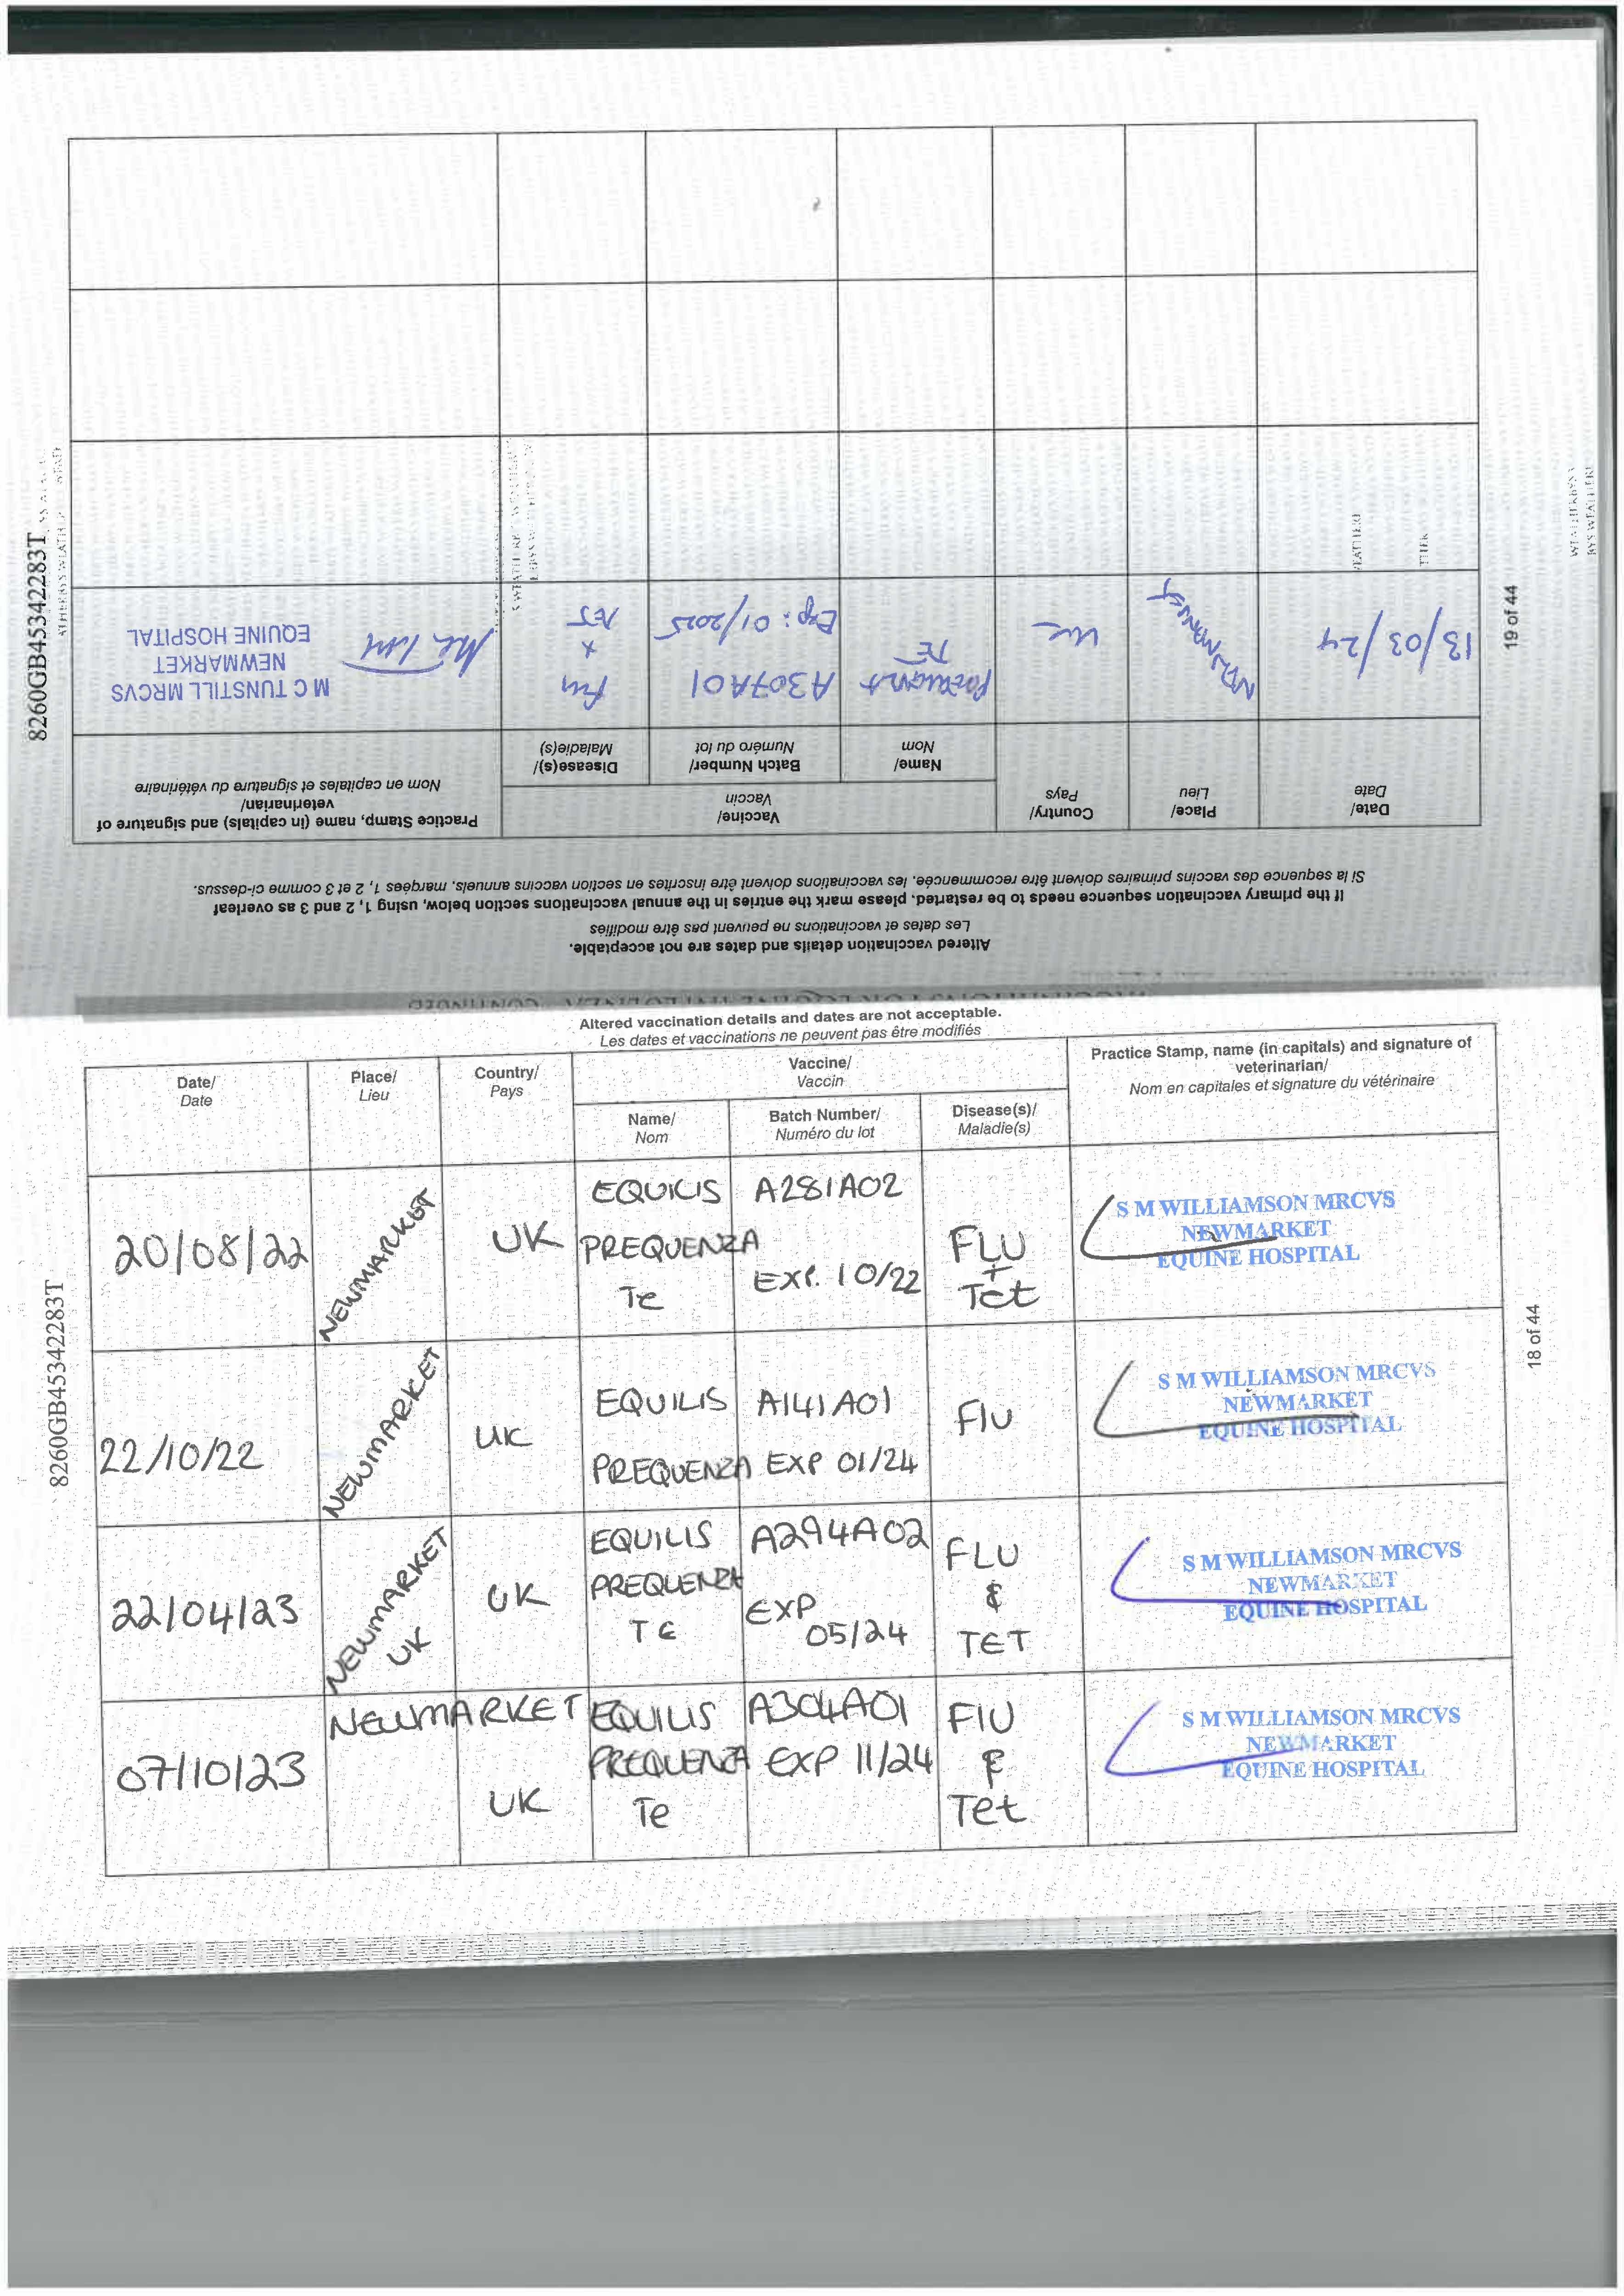 Altered vaccination details and dates are not acceptable.
Les dates et vaccinations ne peuvent pas être modifiés
If the primary vaccination sequence needs to be restarted, please mark the entries in the annual vaccinations section below, using 1, 2 and 3 as overleaf
Si la sequence des vaccins primaires doivent être recommencée, les vaccinations doivent être inscrites en section vaccins annuels, margées 1, 2 et 3 comme ci-dessus.
Date/
Date
Place/
Lieu
Country/
Pays
Vaccine/
Vaccin
Name/
Nom
Batch Number/
Numéro du lot
Disease(s)/
Maladie(s)
Practice Stamp, name (in capitals) and signature of
veterinarian/
Nom en capitales et signature du vétérinaire
13/03/24
NEWMARKET
UK
TE
A307A01
Exp: 01/2025
Flu
+
TET
M C TUNSTILL MRCVS
NEWMARKET
EQUINE HOSPITAL
19 of 44
8260GB45342283T
Altered vaccination details and dates are not acceptable.
Les dates et vaccinations ne peuvent pas être modifiés
Date/
Date
Place/
Lieu
Country/
Pays
Vaccine/
Vaccin
Name/
Nom
Batch Number/
Numéro du lot
Disease(s)/
Maladie(s)
Practice Stamp, name (in capitals) and signature of
veterinarian/
Nom en capitales et signature du vétérinaire
20/08/22
NEWMARKET
UK
EQUILIS
PREQUENZA
Te
A281A02
EXP. 10/22
FLU
+
Tet
S M WILLIAMSON MRCVS
NEWMARKET
EQUINE HOSPITAL
22/10/22
NEWMARKET
UK
EQUILIS
PREQUENZA
A141A01
EXP 01/24
Flu
S M WILLIAMSON MRCVS
NEWMARKET
EQUINE HOSPITAL
22/04/23
NEWMARKET
UK
UK
EQUILIS
PREQUENZA
TE
A294A02
EXP
05/24
FLU
&
TET
S M WILLIAMSON MRCVS
NEWMARKET
EQUINE HOSPITAL
07/10/23
NEWMARKET
UK
EQUILIS
PREQUENZA
Te
A304A01
EXP 11/24
Flu
&
Tet
S M WILLIAMSON MRCVS
NEWMARKET
EQUINE HOSPITAL
18 of 44
8260GB45342283T